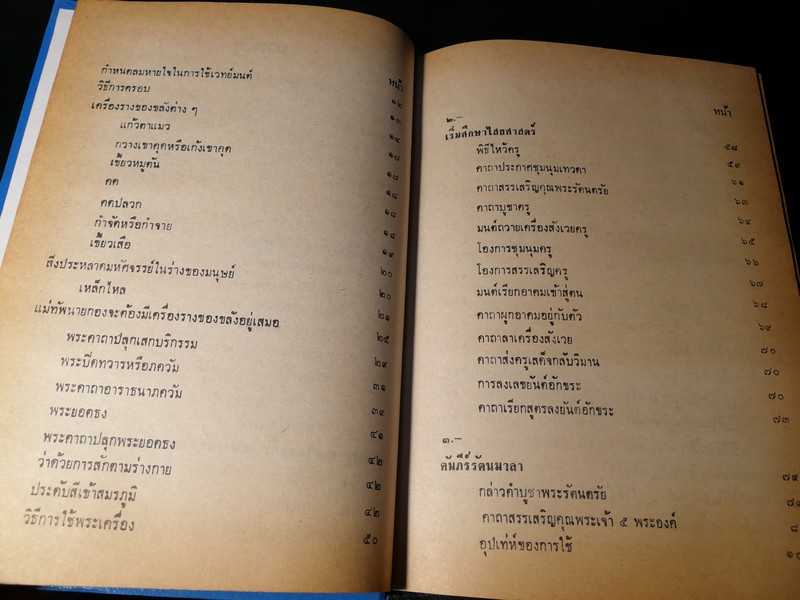 หน้า
กำหนดลมหายใจในการใช้เวทย์มนต์ ๑๒
วิธีการครอบ ๑๓
เครื่องรางของขลังต่าง ๆ ๑๔
แก้วตาแมว ๑๗
กวางเขาคุดหรือเก้งเขาคุด ๑๗
เขี้ยวหมูตัน ๑๘
คด ๑๘
คดปลวก ๑๘
กำจัดหรือกำจาย ๑๙
เขี้ยวเสือ
สิ่งประหลาดมหัศจรรย์ในร่างของมนุษย์ ๒๐
เหล็กไหล ๒๐
แม่ทัพนายกองจะต้องมีเครื่องรางของขลังอยู่เสมอ ๒๑
พระคาถาปลุกเสกบริกรรม ๒๕
พระปิดทวารหรือภควัม ๒๙
พระคาถาอาราธนาภควัม ๓๑
พระยอดธง ๓๙
พระคาถาปลุกพระยอดธง ๔๑
ว่าด้วยการสักตามร่างกาย ๔๒
ประดับสีเข้าสมรภูมิ ๔๒
วิธีการใช้พระเครื่อง ๕๐
หน้า
๒.–
เริ่มศึกษาไสยศาสตร์ ๕๘
พิธีไหว้ครู ๕๙
คาถาประกาศชุมนุมเทวดา ๖๑
คาถาสรรเสริญคุณพระรัตนตรัย ๖๓
คาถาบูชาครู ๖๔
มนต์ถวายเครื่องสังเวยครู ๖๕
โองการชุมนุมครู ๖๖
โองการสรรเสริญครู ๖๗
มนต์เรียกอาคมเข้าสู่ตน ๖๘
คาถาผูกอาคมอยู่กับตัว ๖๙
คาถาลาเครื่องสังเวย ๗๐
คาถาส่งครูเสด็จกลับวิมาน ๗๐
การลงเลขยันต์อักขระ ๗๐
คาถาเรียกสูตรลงยันต์อักขระ ๗๓
๓.–
คัมภีร์รัตนมาลา ๗๙
กล่าวคำบูชาพระรัตนตรัย
คาถาสรรเสริญคุณพระเจ้า ๕ พระองค์
อุปเท่ห์ของการใช้